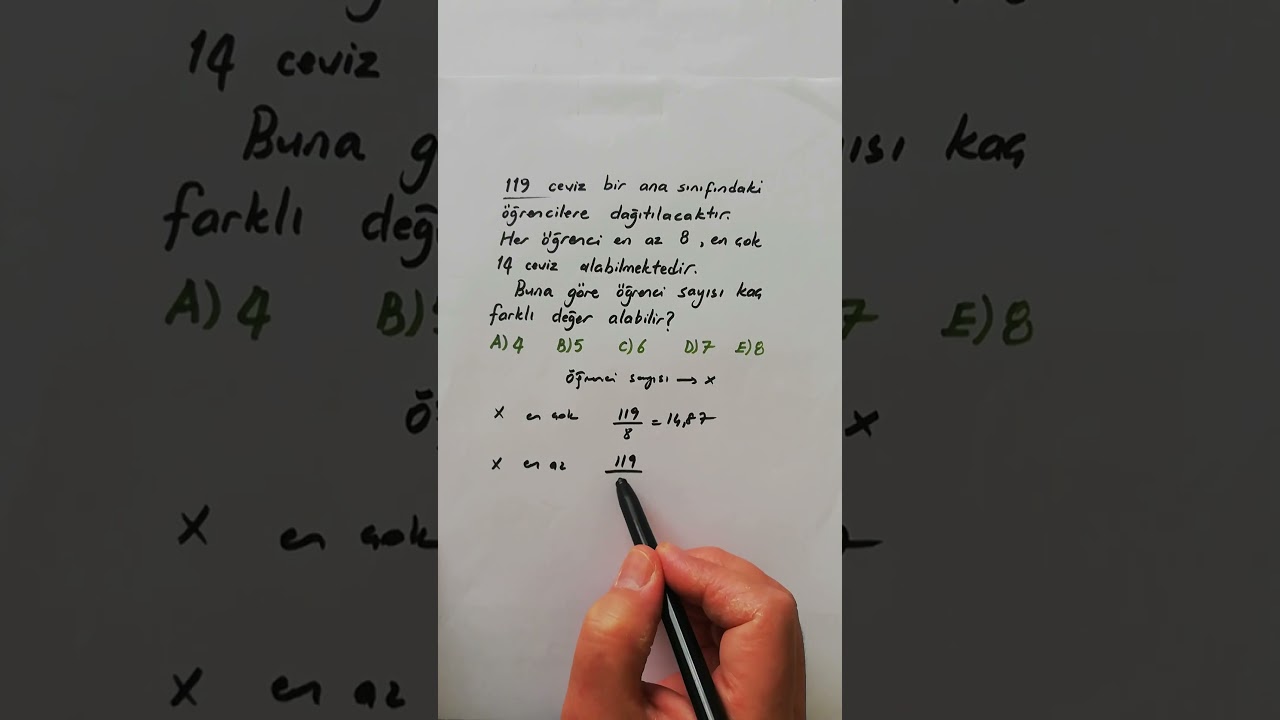 119 ceviz bir ana sınıfındaki
öğrencilere dağıtılacaktır.
Her öğrenci en az 8, en çok
14 ceviz alabilmektedir.
Buna göre öğrenci sayısı kaç
farklı değer alabilir?
A) 4 B) 5 C) 6 D) 7 E) 8
öğrenci sayısı → x
x en çok 119/8 = 14,87
x en az 119